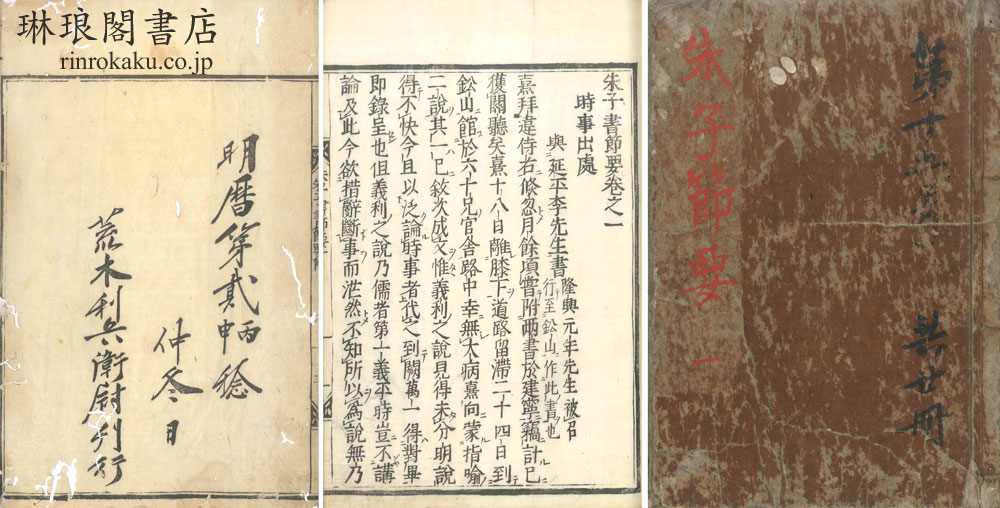 琳琅閣書店
rinrokaku.co.jp
明暦第貳丙申稔
仲冬日
荒木利兵衛尉刊行
朱子書節要卷之一
時事出處
與延平李先生書 隆興元年先生被召
行至鈆山作此書也
嘉拜違侍右倐忽月餘頃嘗附兩書於建寧竊計已
獲關聽矣嘉十八日離膝下道路留滯二十四日到
鈆山館於六十兄官舍路中幸無大病嘉向蒙指喻
二說其一已敘次成文惟義利之說見得未分明說
得不快今且以泛論時事者代之到闕萬一得對畢
即錄呈也但義利之說乃儒者第一義平時豈不講
論及此今欲措辭斷事而茫然不知所以爲說無乃
朱子節要 一
共廿冊